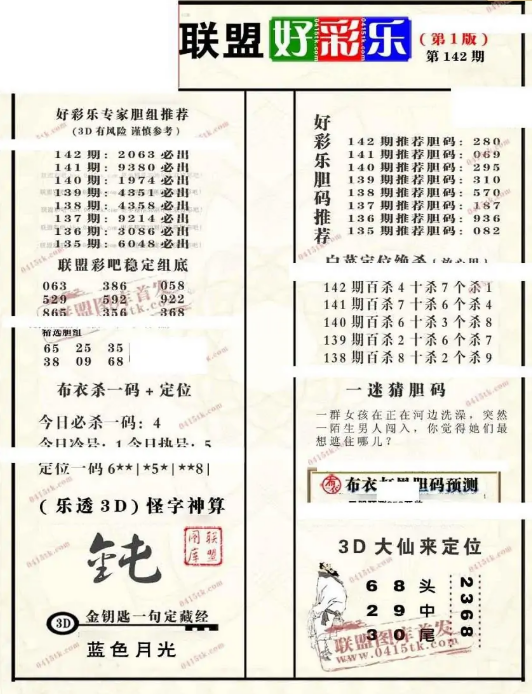 联盟好彩乐(第1版)
第142期
好彩乐专家胆组推荐
(3D有风险 谨慎参考)
142期：2063必出
141期：9380必出
140期：1974必出
139期：4351必出
138期：4358必出
137期：9214必出
136期：3086必出
135期：6048必出
联盟彩吧稳定组底
063 386 058
529 592 922
865 356 368
精选胆组
65 25 35
38 09 68
布衣杀一码+定位
今日必杀一码：4
今日冷号：1 今日热号：5
定位一码 6**|*5*|**8|
(乐透3D)怪字神算
联盟图库
3D 金钥匙一句定藏经
蓝色月光
好彩乐胆码推荐
142期推荐胆码：280
141期推荐胆码：069
140期推荐胆码：295
139期推荐胆码：310
138期推荐胆码：570
137期推荐胆码：187
136期推荐胆码：936
135期推荐胆码：082
142期百杀4十杀7个杀1
141期百杀7十杀6个杀4
140期百杀6十杀3个杀8
139期百杀2十杀6个杀7
138期百杀8十杀2个杀9
一迷猜胆码
一群女孩在正在河边洗澡，突然
一陌生男人闯入，你觉得她们最
想遮住哪儿？
布衣 布衣 胆码预测
3D大仙来定位
6 8 头
2 9 中
3 0 尾
2368
联盟图库首发
www.0415tk.com